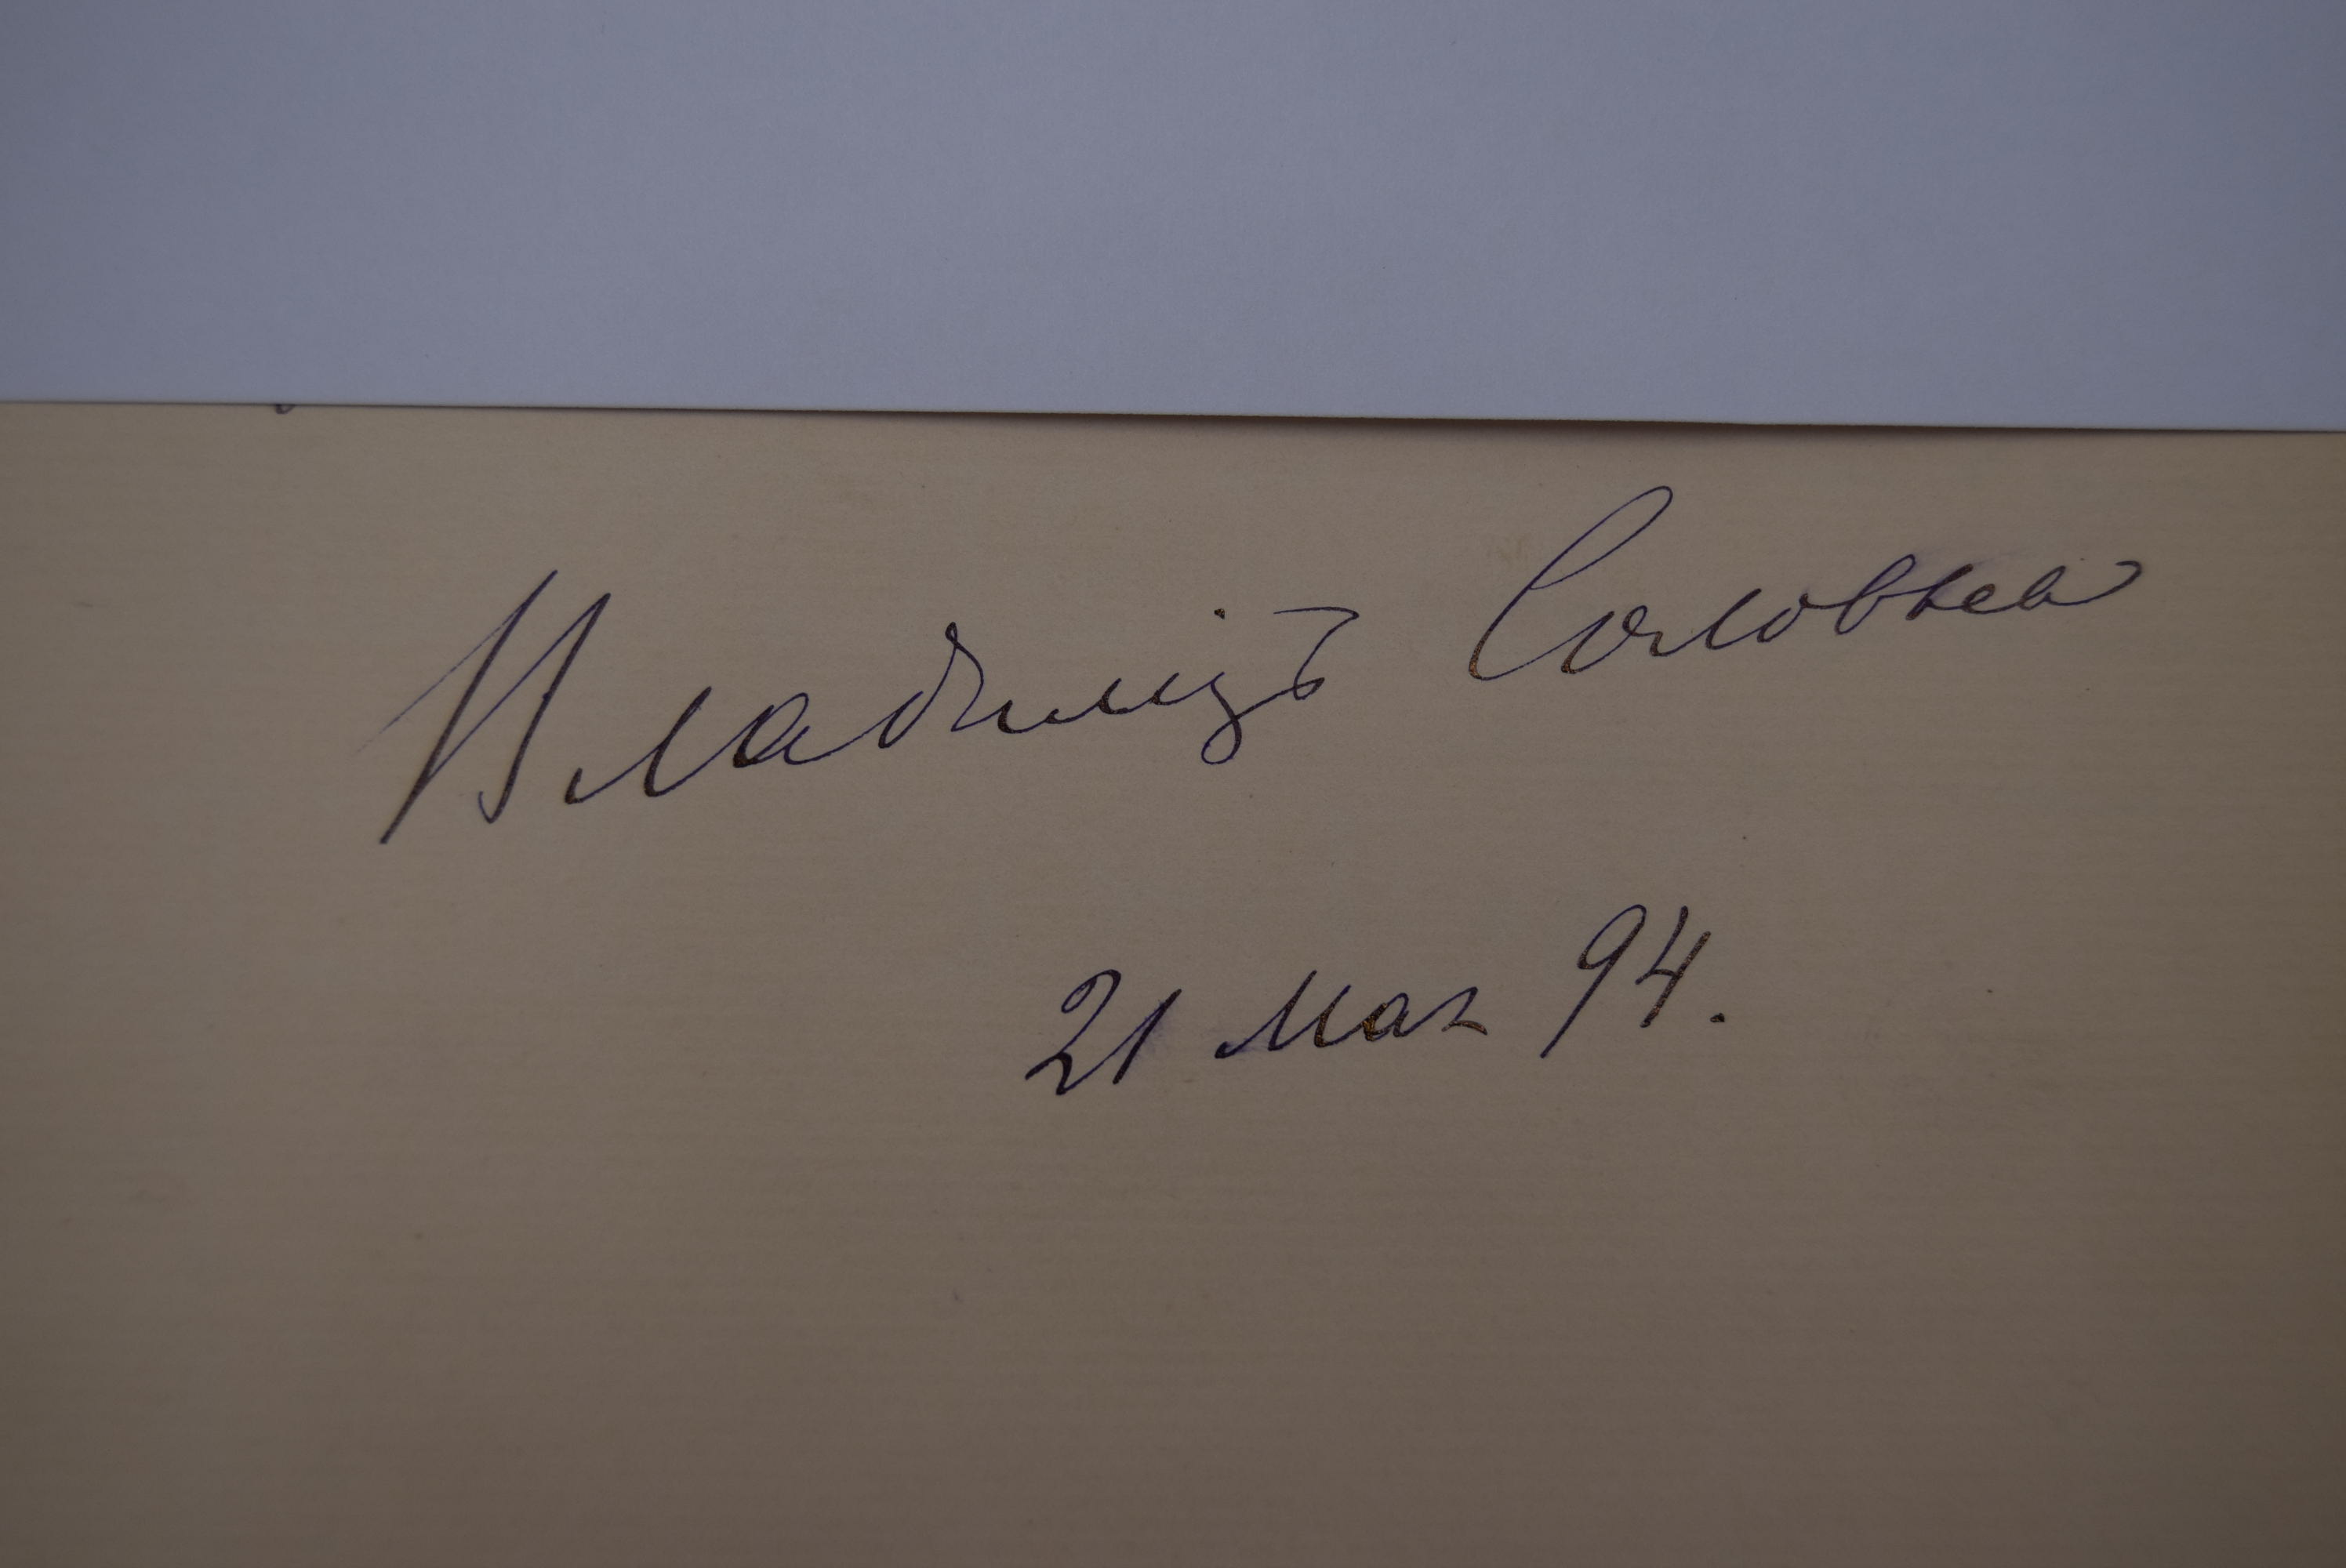 Владиміръ Соловьев
21 мая 94.